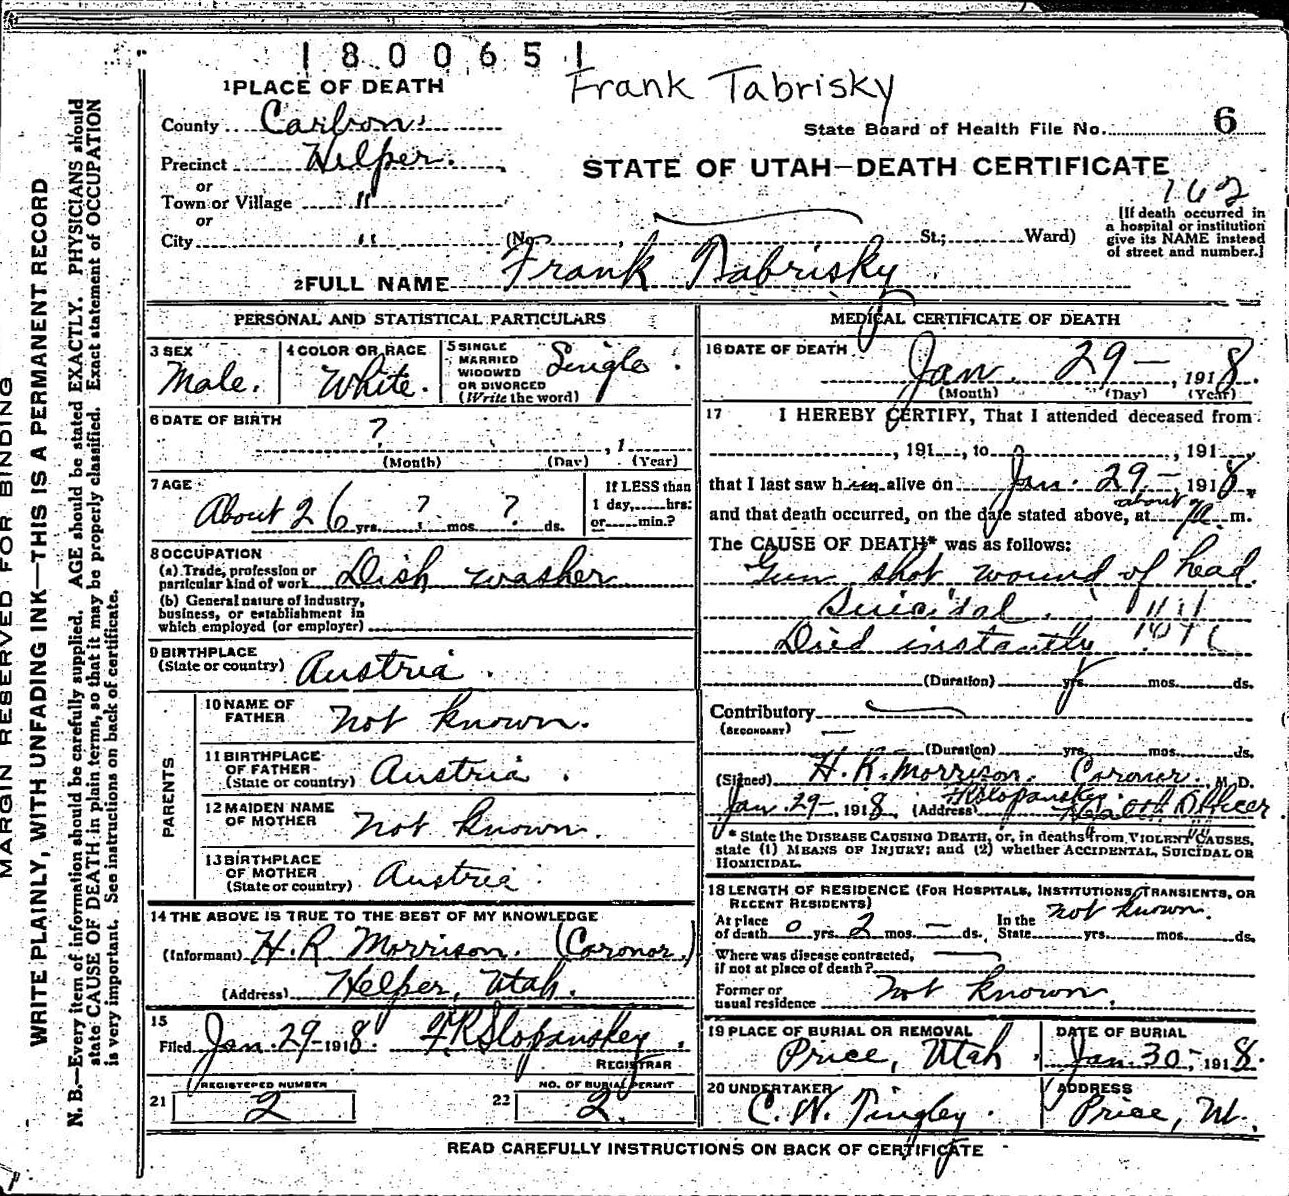 1800651
Frank Tabrisky
1 PLACE OF DEATH
County Carbon
State Board of Health File No. 6
Precinct Helper.
STATE OF UTAH—DEATH CERTIFICATE
or
162
Town or Village "
or
City "
(No. St.; Ward)
[If death occurred in
a hospital or institution
give its NAME instead
of street and number.]
2 FULL NAME Frank Tabrisky
PERSONAL AND STATISTICAL PARTICULARS
3 SEX
Male.
4 COLOR OR RACE
White.
5 SINGLE
MARRIED
WIDOWED
OR DIVORCED
(Write the word)
Single
6 DATE OF BIRTH
?
, 1
(Month) (Day) (Year)
7 AGE
About 26 yrs. ? mos. ? ds.
If LESS than
1 day, hrs.
or min.?
8 OCCUPATION
(a) Trade, profession or
particular kind of work Dish washer
(b) General nature of industry,
business, or establishment in
which employed (or employer)
9 BIRTHPLACE
(State or country) Austria.
PARENTS
10 NAME OF
FATHER not known.
11 BIRTHPLACE
OF FATHER
(State or country) Austria.
12 MAIDEN NAME
OF MOTHER not known.
13 BIRTHPLACE
OF MOTHER
(State or country) Austria.
14 THE ABOVE IS TRUE TO THE BEST OF MY KNOWLEDGE
(Informant) H. R Morrison. (Coronor.)
(Address) Helper, Utah.
15
Filed Jan. 29- 1918.
REGISTRAR
REGISTERED NUMBER
21 2
NO. OF BURIAL PERMIT
22 2.
MEDICAL CERTIFICATE OF DEATH
16 DATE OF DEATH
Jan. 29— , 1918.
(Month) (Day) (Year)
17 I HEREBY CERTIFY, That I attended deceased from
, 191 , to , 191
that I last saw him alive on Jan. 29.— , 1918,
about
and that death occurred, on the date stated above, at 7a. m.
The CAUSE OF DEATH* was as follows:
Gun shot wound of head.
Suicidal.
Died instantly
(Duration) yrs. mos. ds.
Contributory
(SECONDARY)
(Duration) yrs. mos. ds.
(Signed) H. R. Morrison. Coronor. M. D.
Jan 29- , 1918. (Address) Health Officer.
* State the DISEASE CAUSING DEATH, or, in deaths from VIOLENT CAUSES,
state (1) MEANS OF INJURY; and (2) whether ACCIDENTAL, SUICIDAL OR
HOMICIDAL.
18 LENGTH OF RESIDENCE (FOR HOSPITALS, INSTITUTIONS, TRANSIENTS, OR
RECENT RESIDENTS)
not known.
At place
of death 0 yrs. 2 mos. — ds.
In the
State yrs. mos. ds.
Where was disease contracted,
if not at place of death?
Former or
usual residence not known.
19 PLACE OF BURIAL OR REMOVAL
Price, Utah.
DATE OF BURIAL
Jan. 30-, 1918.
20 UNDERTAKER
C. W. Tingley.
ADDRESS
Price, Ut.
READ CAREFULLY INSTRUCTIONS ON BACK OF CERTIFICATE
MARGIN RESERVED FOR BINDING
WRITE PLAINLY, WITH UNFADING INK—THIS IS A PERMANENT RECORD
N. B.—Every item of information should be carefully supplied. AGE should be stated EXACTLY. PHYSICIANS should
state CAUSE OF DEATH in plain terms, so that it may be properly classified. Exact statement of OCCUPATION
is very important. See instructions on back of certificate.